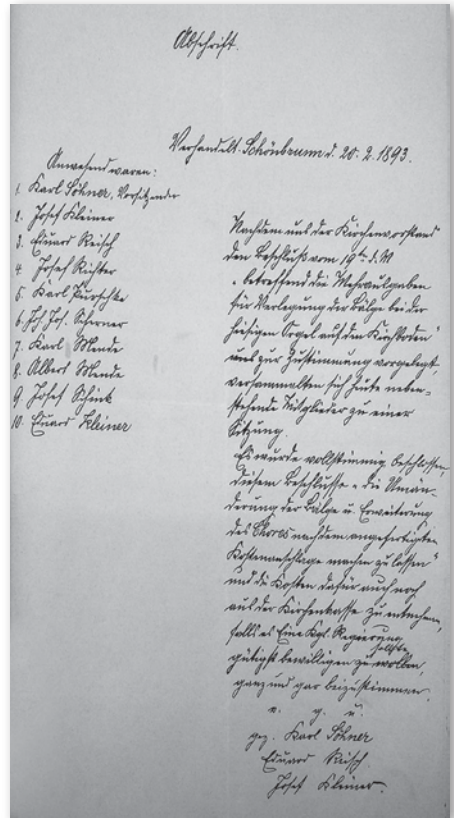 Abschrift.
Verhandelt. Schönbrunn d. 20. 2. 1893.
Anwesend waren:
1. Karl Söhner, Vorsitzender
2. Josef Kleiner
3. Eduard Reisch
4. Josef Richter
5. Karl Purschke
6. Joh. Jos. Scherner
7. Karl Mende
8. Albert Mende
9. Josef Schink
10. Eduard Kleiner
Nachdem uns der Kirchenvorstand
den Beschluß vom 19ten d. M
„betreffend die Mehrausgaben
für Verlegung der Bälge bei der
hiesigen Orgel auf den Kirchboden"
uns zur Zustimmung vorgelegt
versammelten sich heute neben-
stehende Mitglieder zu einer
Sitzung.
Es wurde vollstimmig beschlossen,
diesem Beschlusse „die Umän-
derung der Bälge u. Erweiterung
des Chores nach dem angefertigten
Kostenanschlage machen zu lassen"
und die Kosten dafür auch noch
aus der Kirchenkasse zu entnehmen,
falls es Eine Kgl. Regierung
gütigst bewilligen zu wollen,
ganz und gar beizustimmen.
v. g. u.
gez. Karl Söhner
Eduard Reisch.
Josef Kleiner.